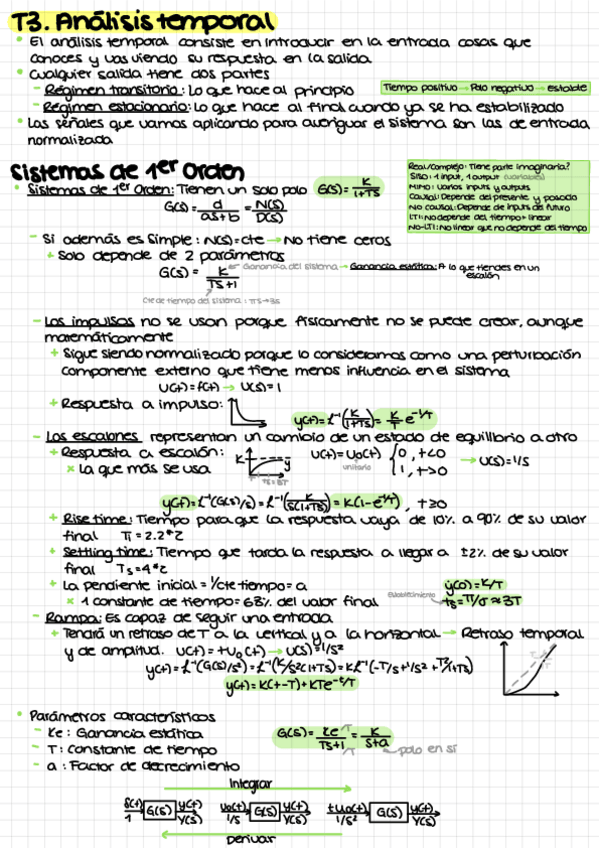 T3. Análisis temporal
• El análisis temporal consiste en introducir en la entrada cosas que
conoces y vas viendo su respuesta en la salida.
• Cualquier salida tiene dos partes
- Régimen transitorio: Lo que hace al principio
Tiempo positivo → Polo negativo → estable
- Régimen estacionario: Lo que hace al final cuando ya se ha estabilizado
• Las señales que vamos aplicando para averiguar el sistema son las de entrada
normalizada
Sistemas de 1er Orden
Real/complejo: Tiene parte imaginaria?
SISO: 1 input, 1 output (variables)
MIMO: varios inputs y outputs
Causal: Depende del presente y pasado
No causal: Depende de inputs de futuro
LTI: No depende del tiempo + linear
No-LTI: No linear que no depende del tiempo
• Sistemas de 1er Orden: Tienen un solo polo G(s) = K/(1+Ts)
G(s) = d/(as+b) = N(s)/D(s)
- Si además es simple: N(s)=cte → No tiene ceros
+ Solo depende de 2 parámetros
G(s) = K/(Ts+1)
Ganancia del sistema → Ganancia estática: A lo que tiendes en un
escalón
Cte de tiempo del sistema
- Los impulsos no se usan porque físicamente no se puede crear, aunque
matemáticamente
+ Sigue siendo normalizado porque lo consideramos como una perturbación
componente externo que tiene menos influencia en el sistema
U(t)=f(t) → U(s)=1
+ Respuesta a impulso:
y(t)= ℒ⁻¹(K/(1+Ts)) = K/T · e^(-t/T)
- Los escalones representan un cambio de un estado de equilibrio a otro
+ Respuesta a escalón: K y ts=3T U(t)=U₀(t) {0, t<0 1, t>0 → U(s)=1/s
unitario
× La que más se usa
y(t)= ℒ⁻¹(G(s)/s) = ℒ⁻¹(K/(s(1+Ts))) = K(1-e^(-t/T)), t≥0
+ Rise time: Tiempo para que la respuesta vaya de 10% a 90% de su valor
final Ti = 2.2*τ
+ Settling time: Tiempo que tarda la respuesta a llegar a ±2% de su valor
final Ts = 4*τ
+ La pendiente inicial = 1/cte tiempo = a
ẏ(0)=K/T
× 1 constante de tiempo = 63% del valor final
Establecimiento ts = π/σ ≈ 3T
- Rampa: Es capaz de seguir una entrada
+ Tendrá un retraso de T a la vertical y a la horizontal → Retraso temporal
y de amplitud. U(t) = t·U₀(t) → U(s)=1/s²
y(t)= ℒ⁻¹(G(s)/s²) = ℒ⁻¹(K/s²(1+Ts)) = Kℒ⁻¹(-T/s+1/s²+T²/1+Ts)
y(t)= K(t-T)+KTe^(-t/T)
• Parámetros característicos
- Ke: Ganancia estática
G(s)= Ke/(Ts+1) = K/(s+a)
- T: Constante de tiempo
polo en sí
- a: Factor de decrecimiento
Integrar
δ(t) 1 G(s) y(t) Y(s) U₀(t) 1/s G(s) y(t) Y(s) tU₀(t) 1/s² G(s) y(t) Y(s)
Derivar